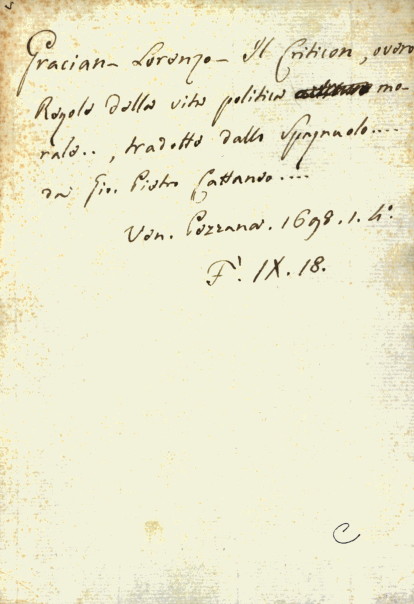 Gracian - Lorenzo - Il Criticon, overo
Regole della vita politica mo-
rale.., tradotte dallo Spagnuolo....
da Gio. Pietro Cattaneo....
Ven. Pezzana. 1698. 1. 4.°
F. IX. 18.
C